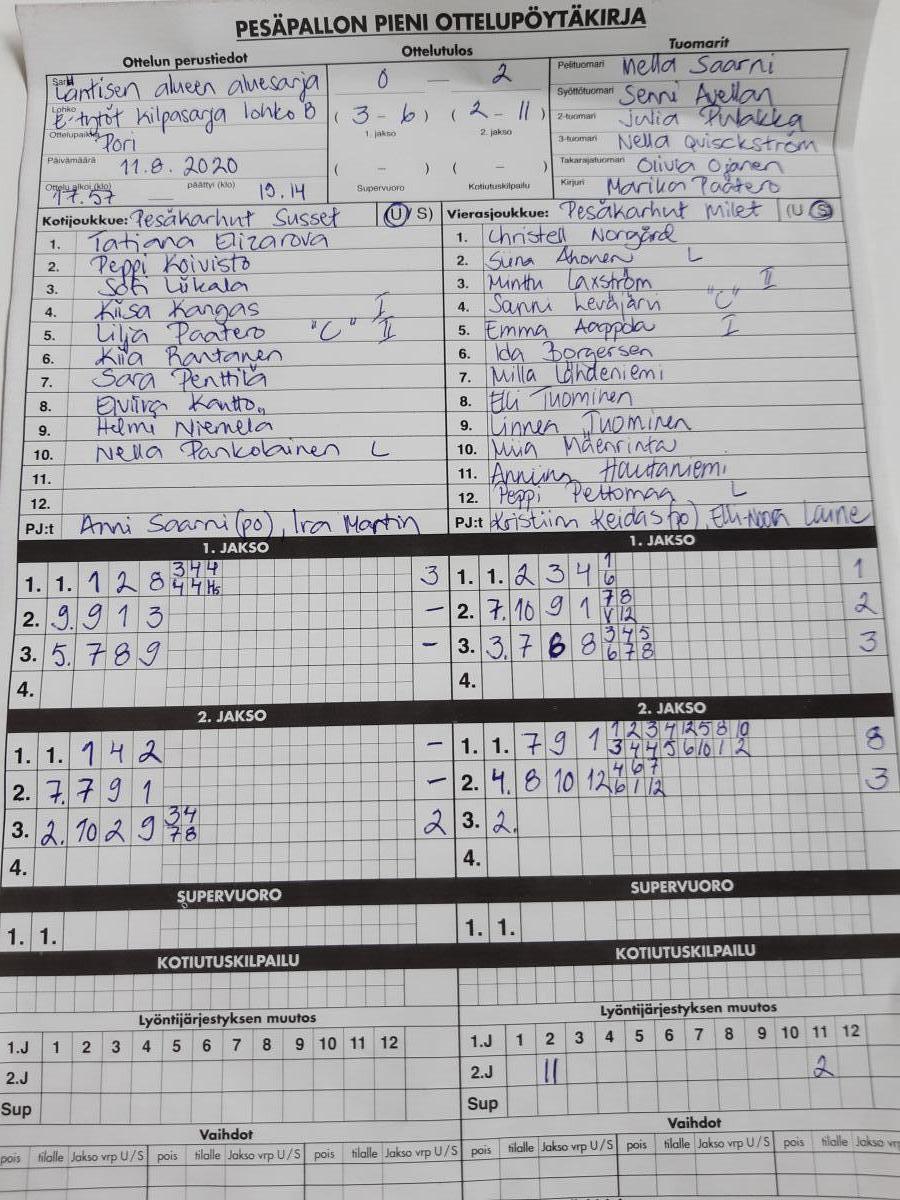 PESÄPALLON PIENI OTTELUPÖYTÄKIRJA
Ottelun perustiedot Ottelutulos Tuomarit
Sarja Läntisen alueen aluesarja 0 — 2 Pelituomari Mella Saarni
Lohko E-tytöt kilpasarja lohko B ( 3 - 6 ) ( 2 - 11 ) Syöttötuomari Senni Avellan
1. jakso 2. jakso 2-tuomari Julia Pulakka
Ottelupaikka Pori 3-tuomari Nella Quisckström
Päivämäärä 11.8.2020 ( - ) ( - ) Takarajatuomari Olivia Ojanen
Ottelu alkoi (klo) 17.57 — päättyi (klo) 19.14 Supervuoro Kotiutuskilpailu Kirjuri Marika Paatero
Kotijoukkue: Pesäkarhut Susset (U/S) Vierasjoukkue: Pesäkarhut Milet (U/S)
1. Tatjana Elizarova 1. Christell Norgård
2. Peppi Koivisto 2. Suna Ahonen L
3. Sofi Liikala 3. Minttu Laxström II
4. Kiisa Kangas I 4. Sanni Leväjärvi "C"
5. Lilja Paatero "C" II 5. Emma Aappola I
6. Kiia Rantanen 6. Ida Borgersen
7. Sara Penttilä 7. Milla Lähdeniemi
8. Elviira Kantto 8. Elli Tuominen
9. Helmi Niemelä 9. Linnea Tuominen
10. Nella Pankolainen L 10. Miia Mäenrinta
11. 11. Anniina Hautaniemi
12. 12. Peppi Peltomaa L
PJ:t Anni Saarni (po), Ira Martin PJ:t Kristiin Keidas (po), Elli-Noora Laine
1. JAKSO 1. JAKSO
3 4 4 1
1. 1. 1 2 8 4 4 Hs 3 1. 1. 2 3 4 6 1
7 8
2. 9. 9 1 3 – 2. 7. 10 9 1 V 12 2
3 4 5
3. 5. 7 8 9 – 3. 3. 7 6 8 6 7 8 3
4. 4.
2. JAKSO 2. JAKSO
1 2 3 4 12 5 8 10
1. 1. 1 4 2 – 1. 1. 7 9 1 3 4 4 5 6 10 1 2 8
4 6 7
2. 7. 7 9 1 – 2. 4. 8 10 12 6 1 12 3
3 4
3. 2. 10 2 9 7 8 2 3. 2.
4. 4.
SUPERVUORO SUPERVUORO
1. 1. 1. 1.
KOTIUTUSKILPAILU KOTIUTUSKILPAILU
Lyöntijärjestyksen muutos Lyöntijärjestyksen muutos
1.J 1 2 3 4 5 6 7 8 9 10 11 12 1.J 1 2 3 4 5 6 7 8 9 10 11 12
2.J 2.J 11 2
Sup Sup
Vaihdot Vaihdot
pois tilalle Jakso vrp U/S pois tilalle Jakso vrp U/S pois tilalle Jakso vrp U/S pois tilalle Jakso vrp U/S pois tilalle Jakso vrp U/S pois tilalle Jakso